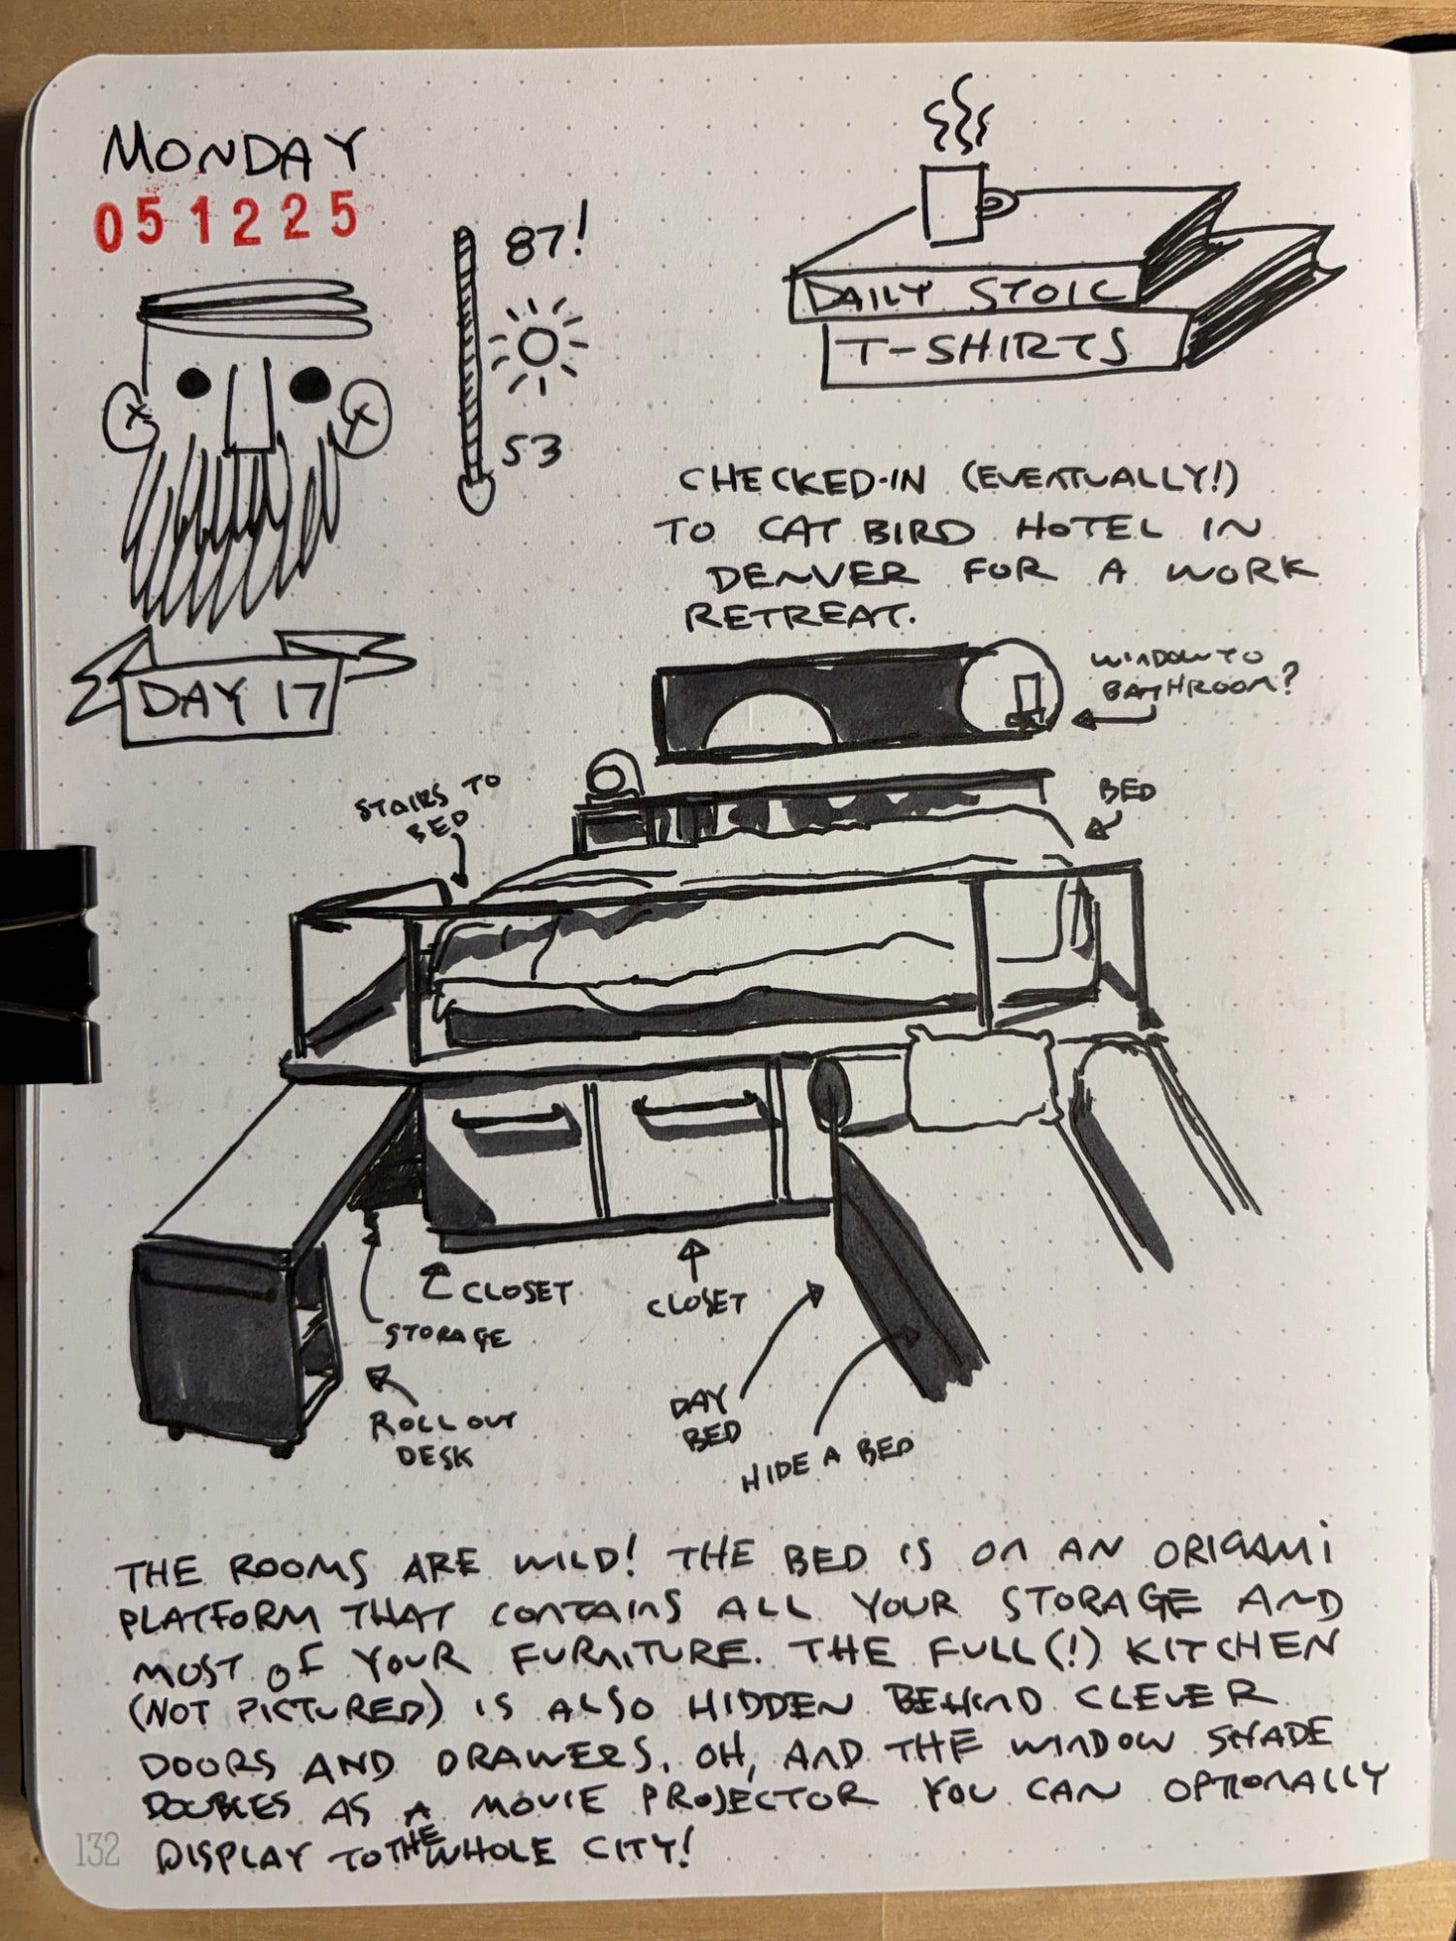 MONDAY
051225
87!
53
DAILY STOIC
T-SHIRTS
DAY 17
CHECKED-IN (EVENTUALLY!)
TO CATBIRD HOTEL IN
DENVER FOR A WORK
RETREAT.
WINDOW TO
BATHROOM?
STAIRS TO
BED
BED
CLOSET
CLOSET
STORAGE
ROLL OUT
DESK
DAY
BED
HIDE A BED
THE ROOMS ARE WILD! THE BED IS ON AN ORIGAMI
PLATFORM THAT CONTAINS ALL YOUR STORAGE AND
MOST OF YOUR FURNITURE. THE FULL(!) KITCHEN
(NOT PICTURED) IS ALSO HIDDEN BEHIND CLEVER
DOORS AND DRAWERS. OH, AND THE WINDOW SHADE
DOUBLES AS A MOVIE PROJECTOR YOU CAN OPTIONALLY
DISPLAY TO THE WHOLE CITY!
132